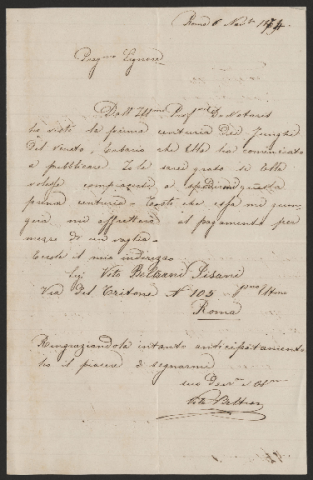 Roma 6 Nov.e 1874
Preg.mo Signore
Dall'Ill.mo Prof. DeNotaris
ho visto la prima centuria dei Funghi
del Veneto, Erbario che Ella ha cominciato
a pubblicare. Le sarei grato se Ella
volesse compiacersi a spedirmi quella
prima centuria. Tosto che essa mi giun-
gerà mi affretterò al pagamento per
mezzo di un vaglia.
Eccole il mio indirizzo
Vito Beltrani Pisani
Via del Tritone N° 105 p.mo Ultimo
Roma
Ringraziandola intanto anticipatamente
ho il piacere di segnarmi
suo Dev.mo
Vito Beltrani